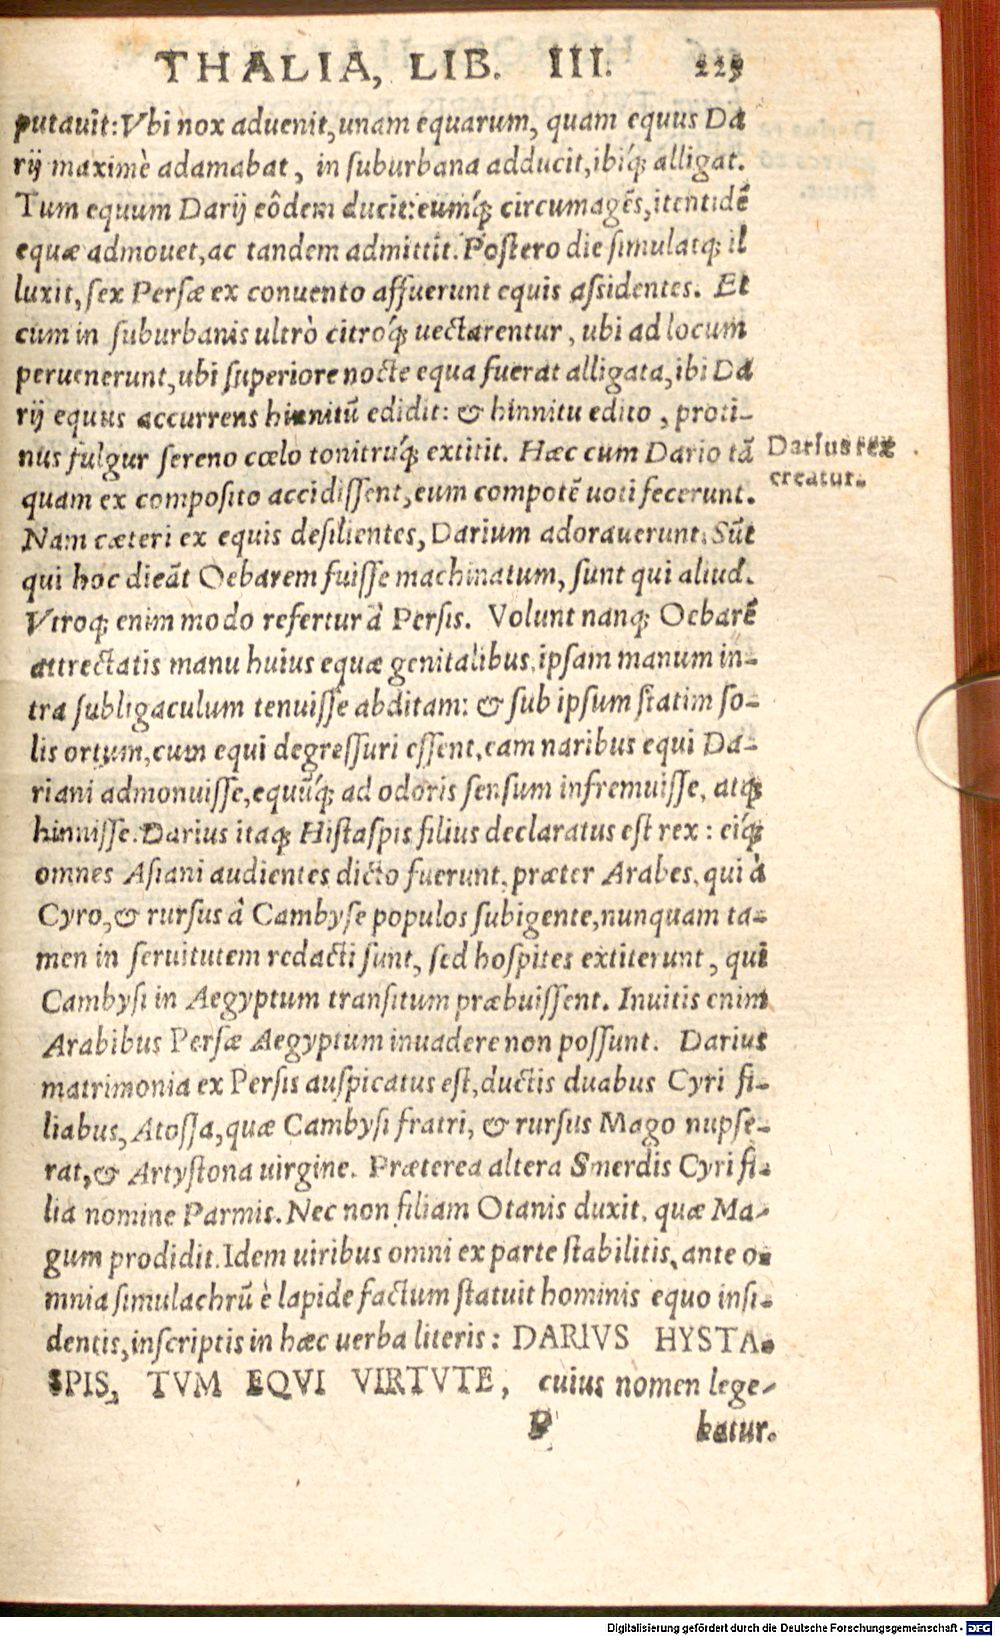 THALIA, LIB. III. 225
putauit: Vbi nox aduenit, unam equarum, quam equus Da
rij maximè adamabat, in suburbana adducit, ibiq́; alligat.
Tum equum Darij eôdem ducit: eumq́; circumagẽs, itentidẽ
equæ admouet, ac tandem admittit. Postero die simulatq; il
luxit, sex Persæ ex conuento affuerunt equis assidentes. Et
cum in suburbanis ultrò citroq́; uectarentur, ubi ad locum
peruenerunt, ubi superiore nocte equa fuerat alligata, ibi Da
rij equus accurrens hinnitũ edidit: & hinnitu edito, proti-
nus fulgur sereno cœlo tonitruq́; extitit. Hæc cum Dario tã
Darius rex
creatur.
quam ex composito accidissent, eum compotẽ uoti fecerunt.
Nam cæteri ex equis desilientes, Darium adorauerunt. Sũt
qui hoc dicãt Oebarem fuisse machinatum, sunt qui aliud.
Vtroq; enim modo refertur à Persis. Volunt nanq; Oebarẽ
attrectatis manu huius equæ genitalibus, ipsam manum in-
tra subligaculum tenuisse abditam: & sub ipsum statim so-
lis ortum, cum equi degressuri essent, eam naribus equi Da-
riani admonuisse, equũq́; ad odoris sensum infremuisse, atq;
hinnisse. Darius itaq; Histaspis filius declaratus est rex: eiq́;
omnes Asiani audientes dicto fuerunt, præter Arabes, qui à
Cyro, & rursus à Cambyse populos subigente, nunquam ta-
men in seruitutem redacti sunt, sed hospites extiterunt, qui
Cambysi in Aegyptum transitum præbuissent. Inuitis enim
Arabibus Persæ Aegyptum inuadere non possunt. Darius
matrimonia ex Persis auspicatus est, ductis duabus Cyri fi-
liabus, Atossa, quæ Cambysi fratri, & rursus Mago nupse-
rat, & Artystona uirgine. Præterea altera Smerdis Cyri fi-
lia nomine Parmis. Nec non filiam Otanis duxit, quæ Ma-
gum prodidit. Idem uiribus omni ex parte stabilitis, ante o-
mnia simulachrũ è lapide factum statuit hominis equo insi-
dentis, inscriptis in hæc uerba literis: DARIVS HYSTA-
SPIS, TVM EQVI VIRTVTE, cuius nomen lege-
P batur.
Digitalisierung gefördert durch die Deutsche Forschungsgemeinschaft - DFG